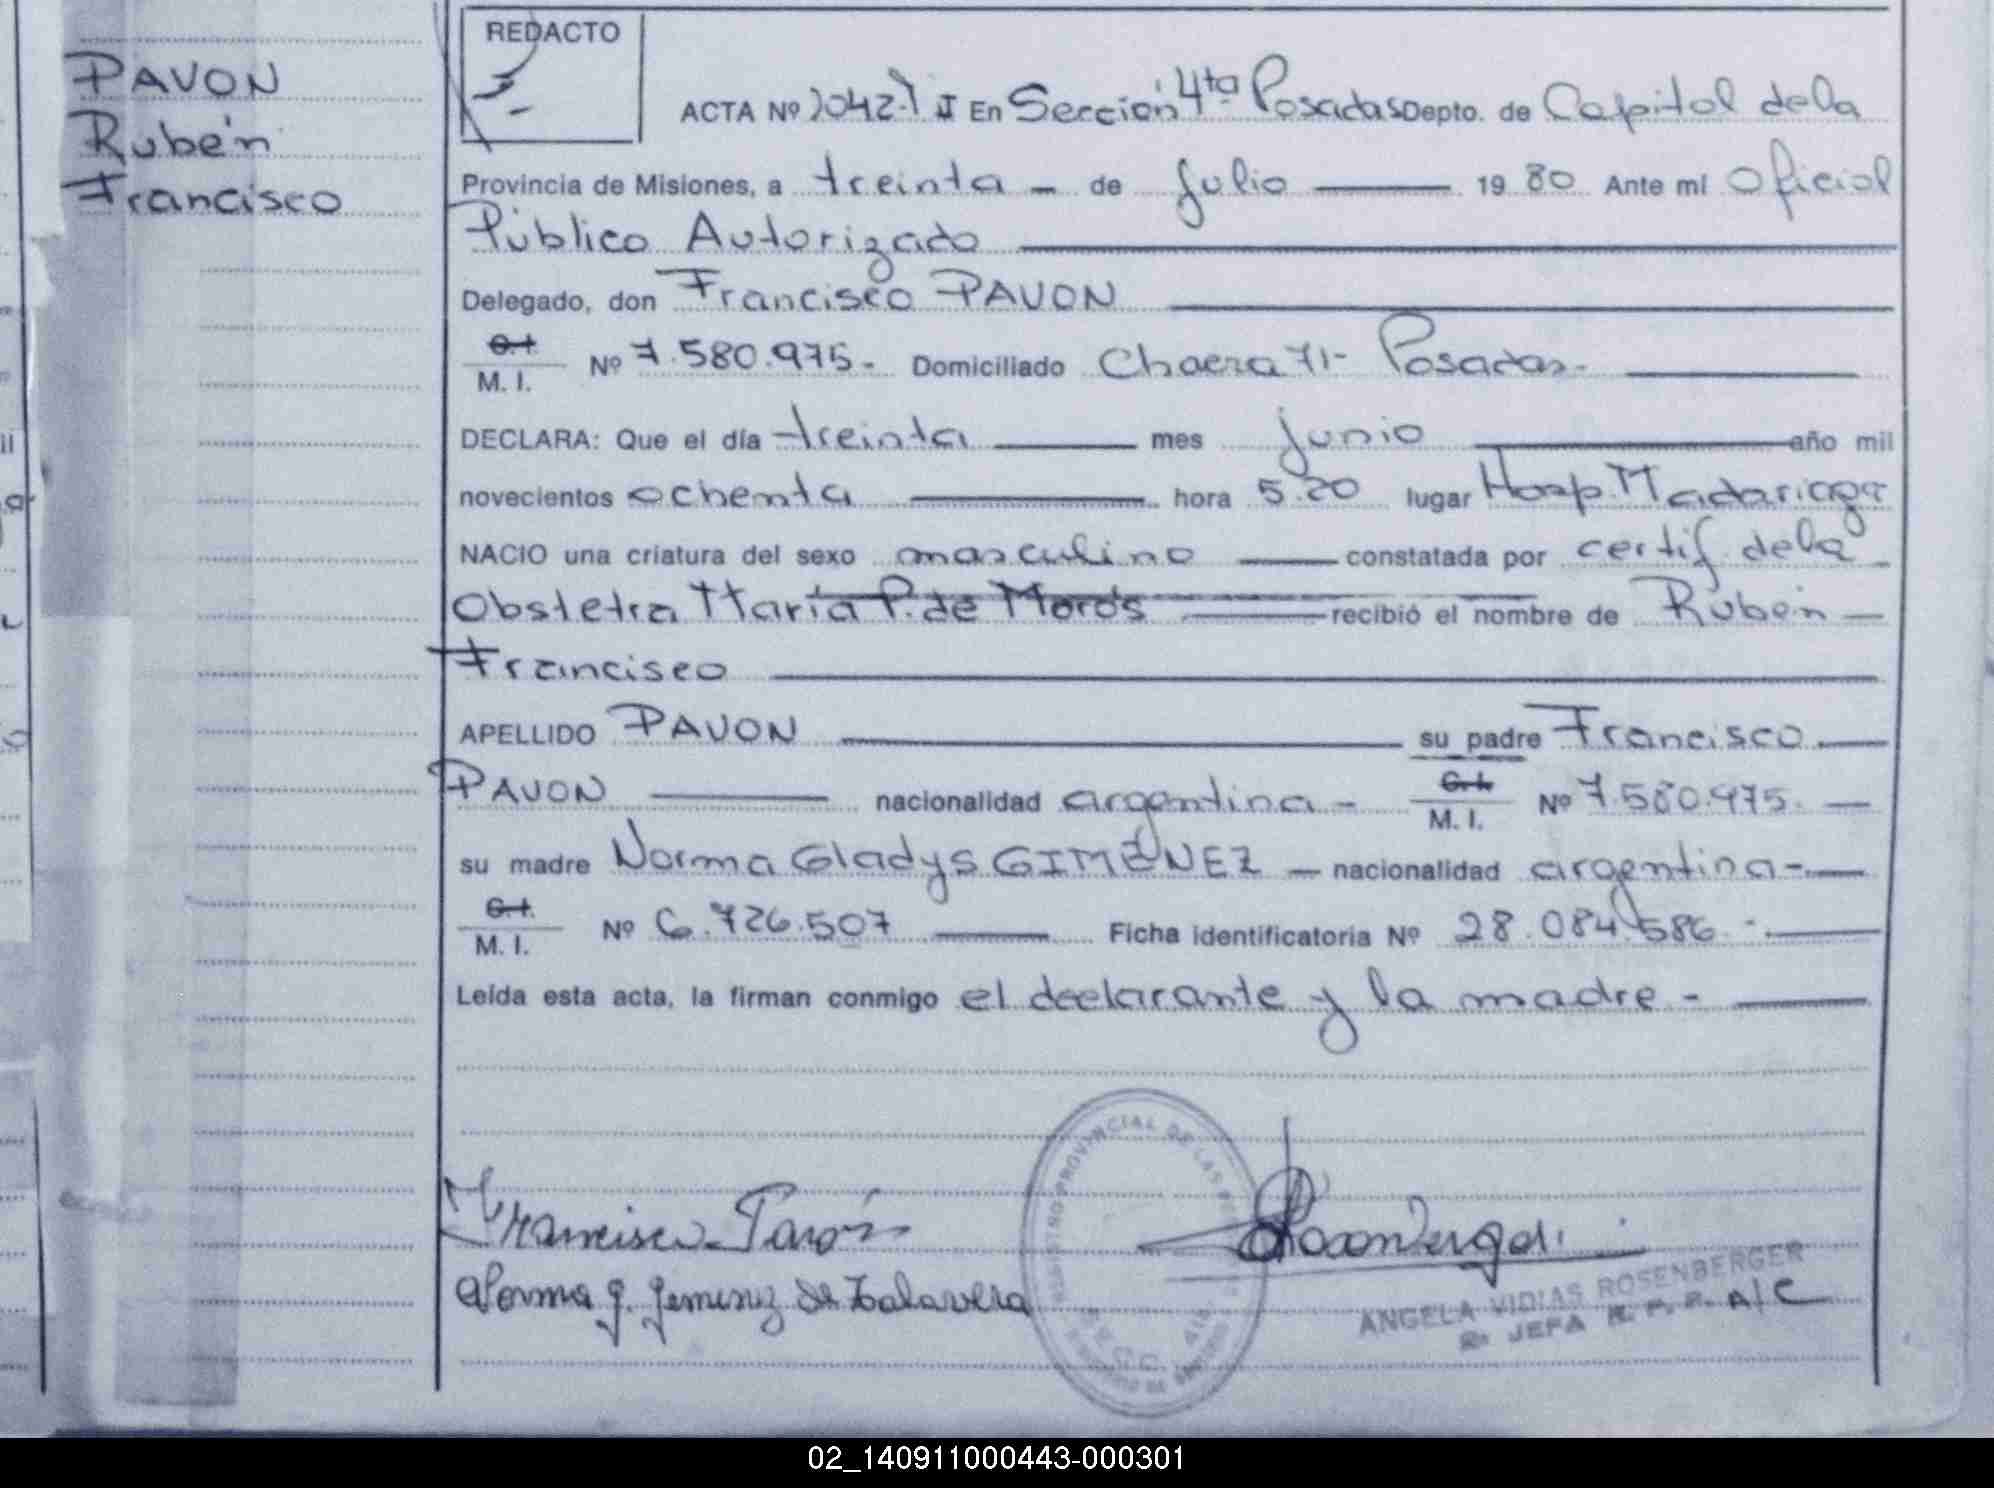 PAVON
Rubén
Francisco
REDACTO
ACTA Nº 2042-T I En Sección 4ta Posadas Depto. de Capital de la
Provincia de Misiones, a treinta - de julio 19 80 Ante mí Oficial
Público Autorizado
Delegado, don Francisco PAVON
C.I. M. I. Nº 7.580.975- Domiciliado Chacra 71- Posadas-
DECLARA: Que el día treinta mes junio año mil
novecientos ochenta hora 5.20 lugar Hosp. Madariaga
NACIO una criatura del sexo masculino constatada por certif. de la
Obstetra María P. de Morós recibió el nombre de Rubén
Francisco
APELLIDO PAVON su padre Francisco
PAVON nacionalidad argentina - C.I. M. I. Nº 7.580.975.
su madre Norma Gladys GIMÉNEZ nacionalidad argentina-
C.I. M. I. Nº 6.726.507 Ficha identificatoria Nº 28.084.586.-
Leída esta acta, la firman conmigo el declarante y la madre -
Francisco Pavón
Norma G. Gimenez de Talavera
REGISTRO PROVINCIAL DE LAS
ANGELA VIDIAS ROSENBERGER
JEFA R. P. P. A/C
02_140911000443-000301